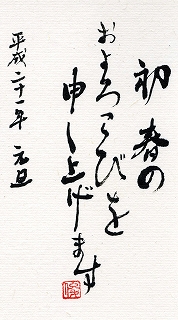 初春の
およろこびを
申し上げます
平成二十一年 元旦